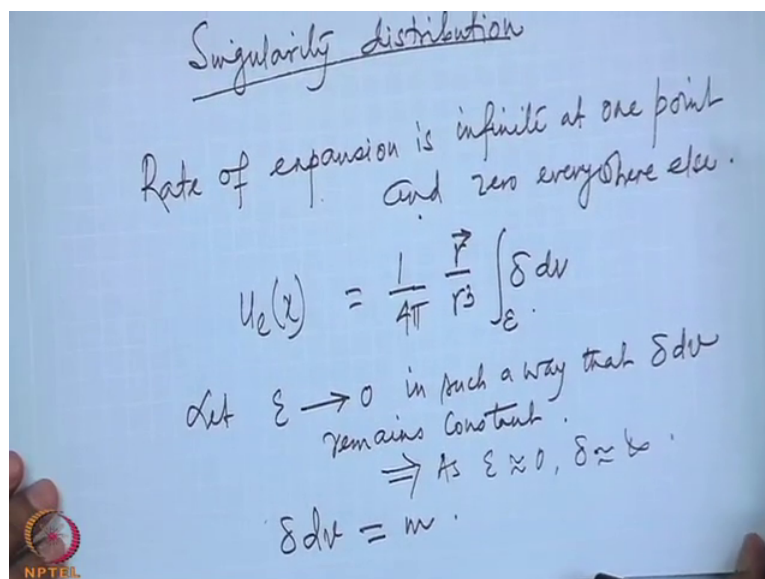 Singularity distribution
Rate of expansion is infinite at one point
and zero everywhere else.
u_e(x) = 1/4π r⃗/r³ ∫_ε δ dv
Let ε → 0 in such a way that δ dv
remains constant.
⇒ As ε ≈ 0, δ ≈ ∞.
δ dv = m.
NPTEL